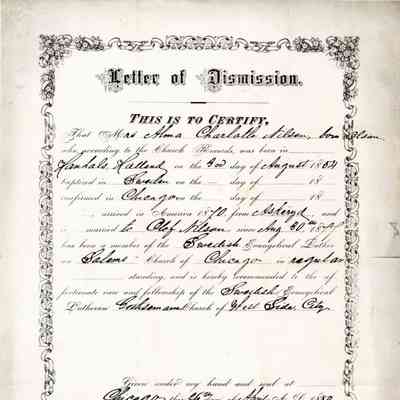 Letter of Dismission.
THIS IS TO CERTIFY,
That Mrs Alma Charlotte Nilson, born Olson
who, according to the Church Records, was born in
Landals, Halland, on the 3rd day of August 1854
baptized in Sweden on the — day of 18
confirmed in Chicago on the — day of 18
arrived in America 1870, from Askeryd, and
is married to Olof Nilson since Aug 30th 1879
has been a member of the Swedish Evangelical Luther
an Salems Church of Chicago in regular
standing, and is hereby recommended to the af
fectionate care and fellowship of the Swedish Evangelical
Lutheran Gethsemane Church of West Side City
Given under my hand and seal at
Chicago this day of April A. D. 188